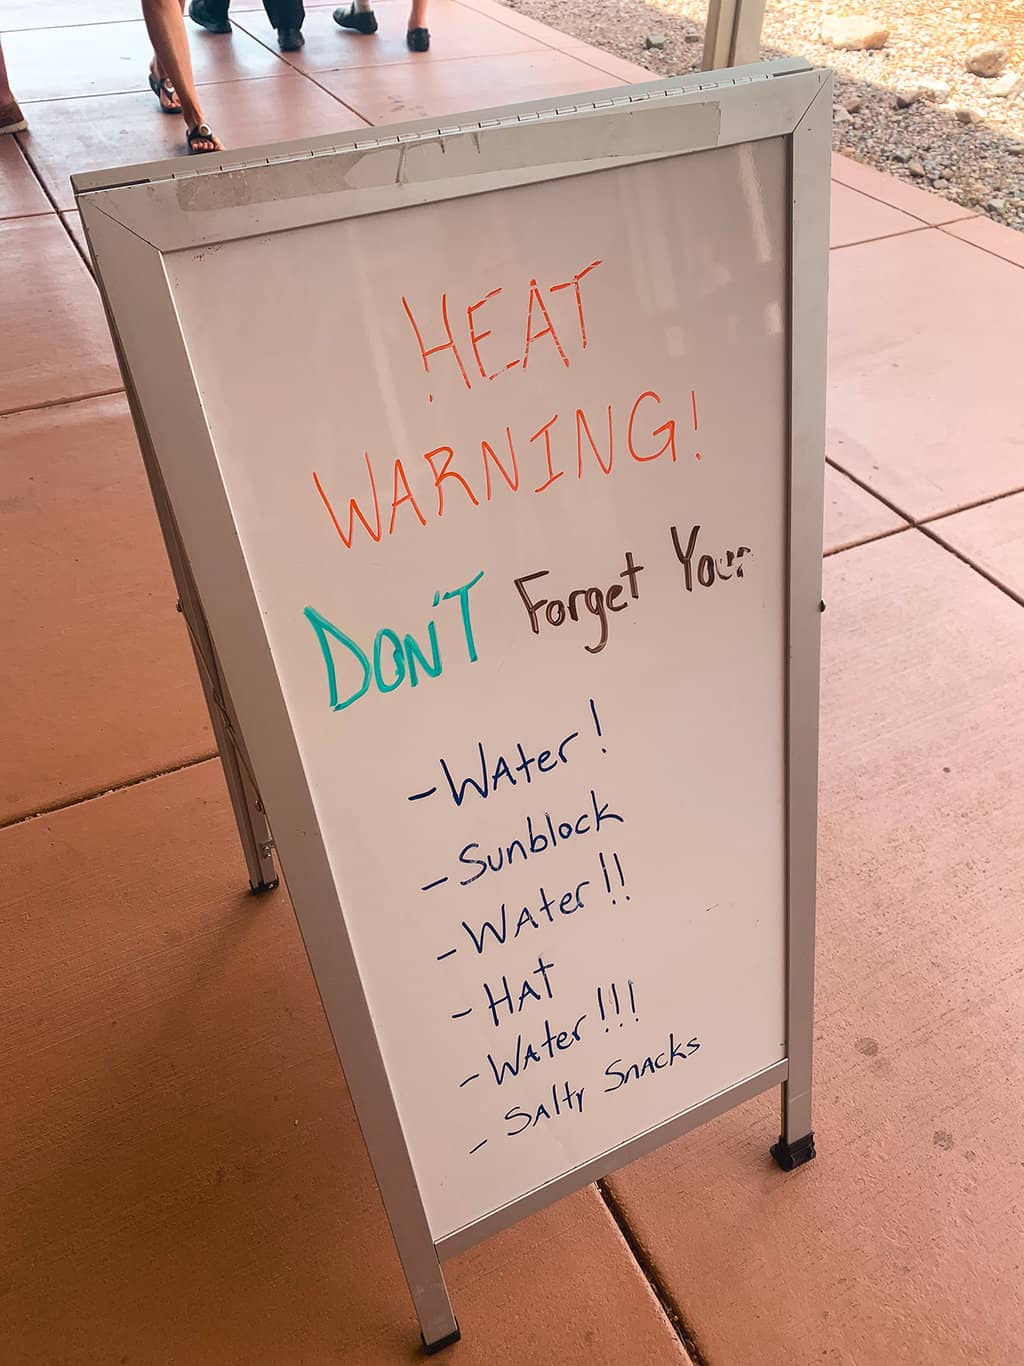 HEAT
WARNING!
DON'T Forget Your
- Water!
- Sunblock
- Water!!
- HAT
- Water!!!
- Salty Snacks